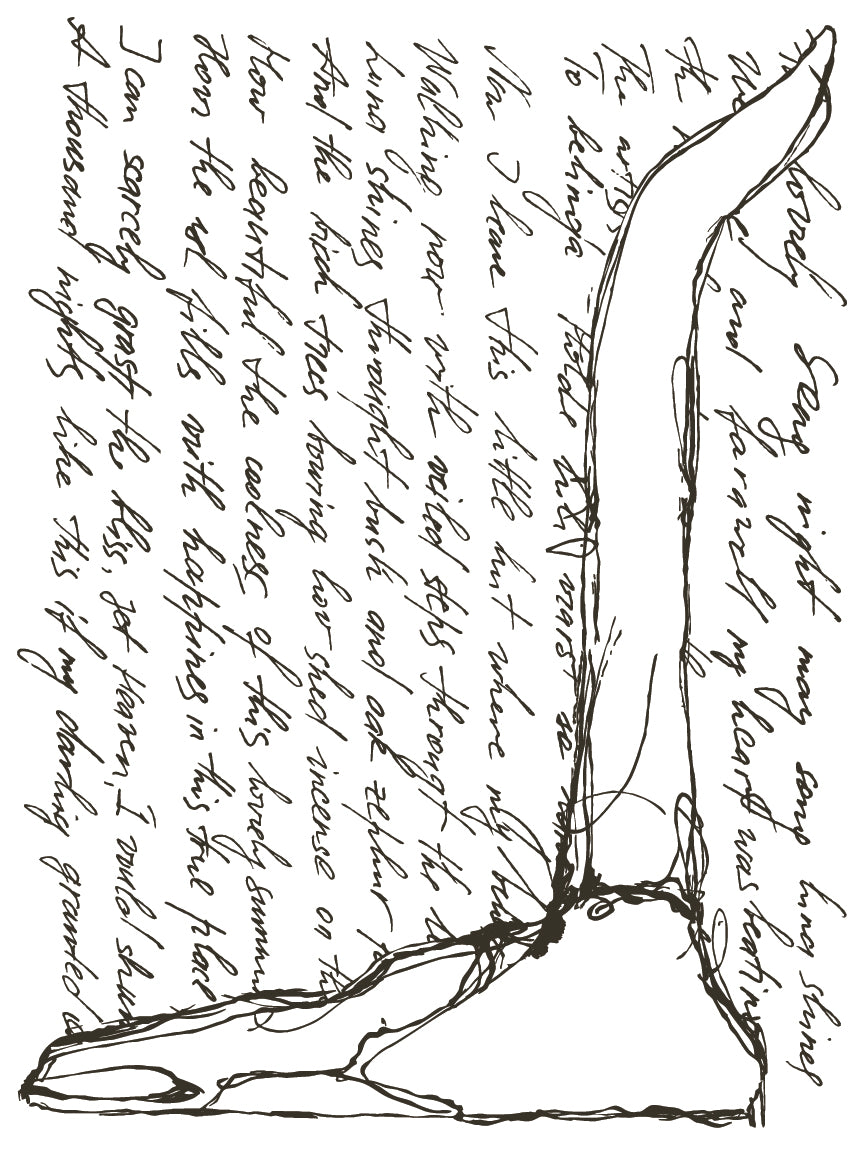 lovely Song night may song luna shines
and farwell my heart was beating
The
The
To
Now I leave this little hut where my
Walking now with veiled steps throught the
Luna shines throught bush and oak zephur
And the birch trees bowing low shed incense on
How beautiful the coolness of this lovely summ
How the sol fills with happines in this true place
I can scarcely grasp the bliss, Jet Heaven, I would shun
A thousand nights like this if my darling granted